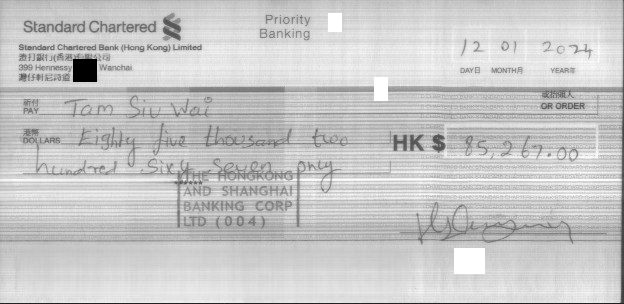 Standard Chartered
Priority
Banking
Standard Chartered Bank (Hong Kong) Limited
渣打銀行(香港)有限公司
399 Hennessy Wanchai
灣仔軒尼詩道
12 01 2024
DAY日 MONTH月 YEAR年
祈付
PAY Tam Siu Wai
或持票人
OR ORDER
港幣
DOLLARS Eighty five thousand two
HK $ 85,267.00
hundred Sixty Seven only
THE HONGKONG
AND SHANGHAI
BANKING CORP
LTD (004)